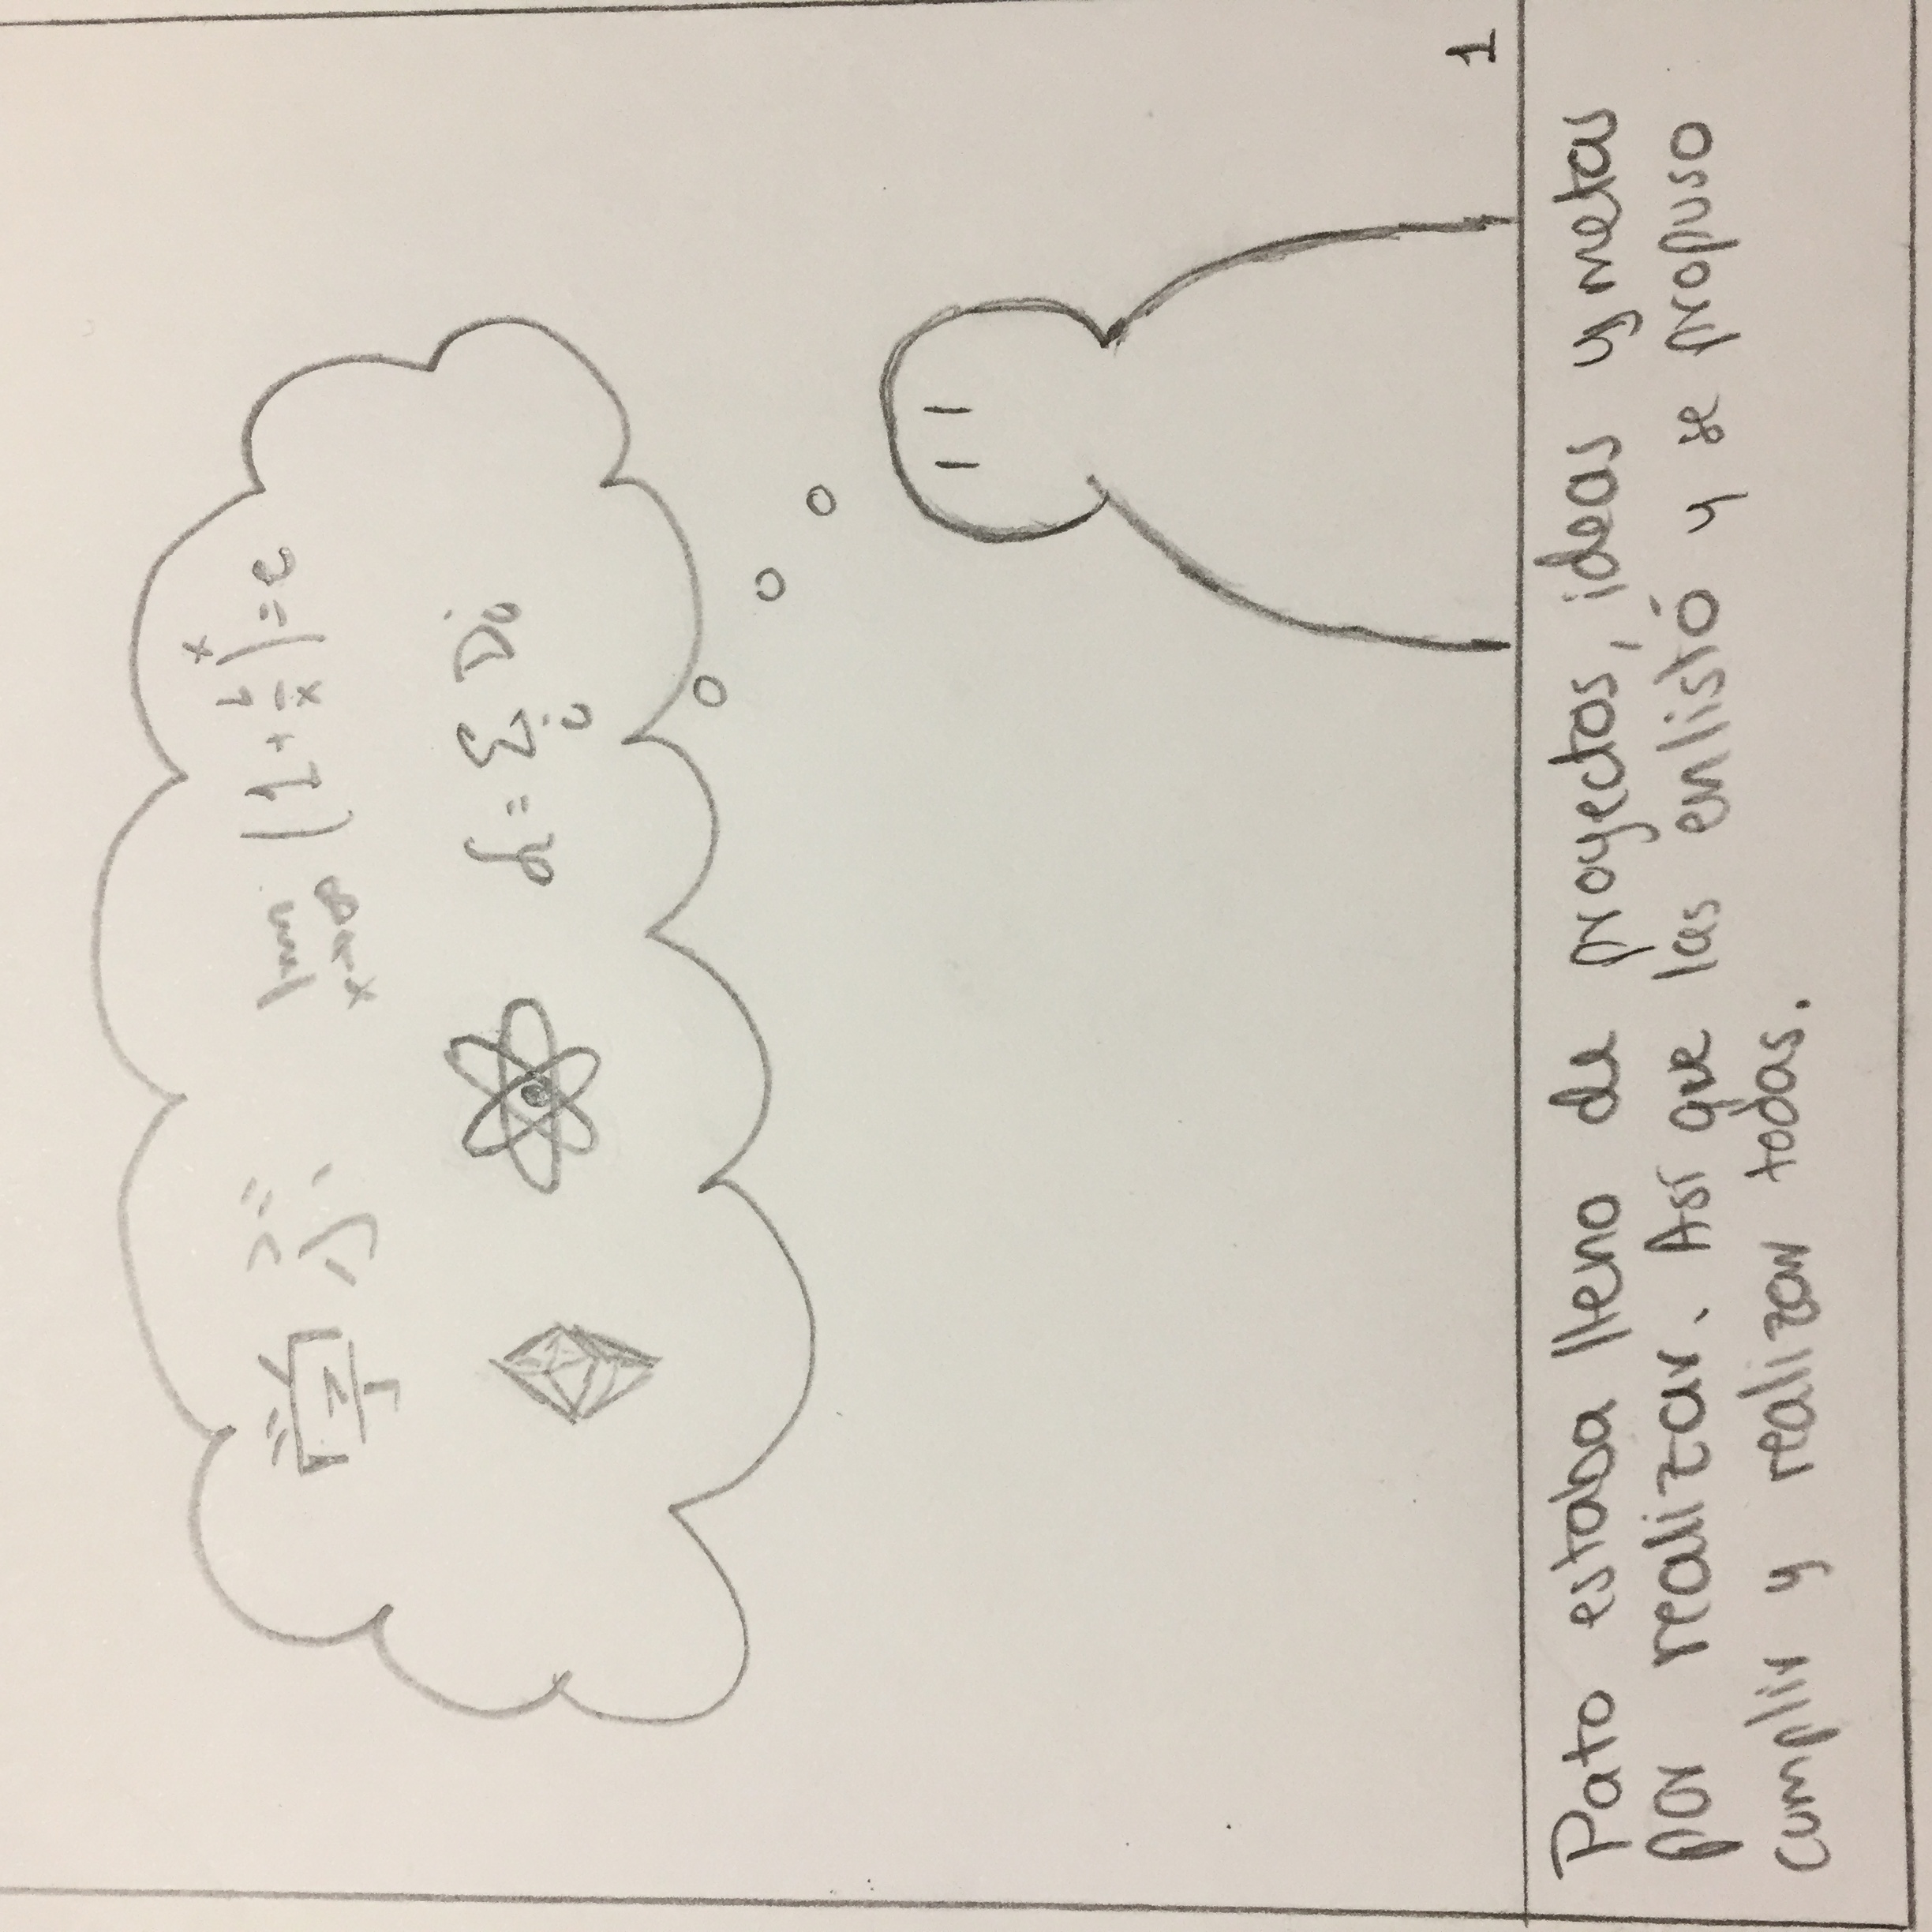 学ぶ
lim (1 + 1/x)^x = e
x→∞
= Σ Di
i
1
Pato estaba lleno de proyectos, ideas y metas
por realizar. Así que las enlistó y se propuso
cumplir y realizar todas.